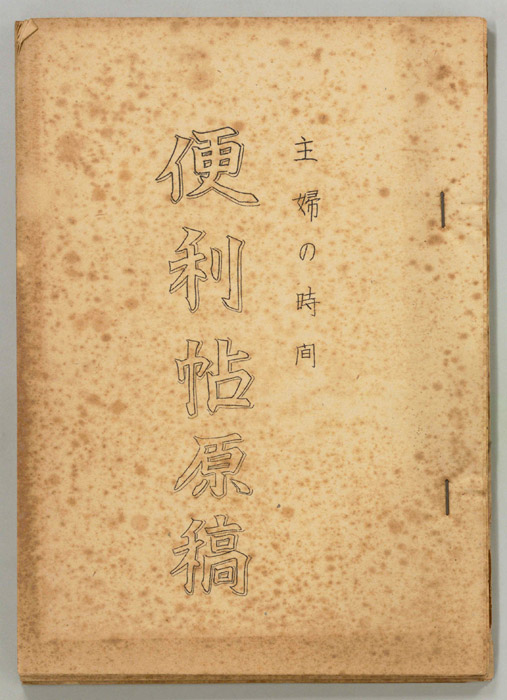 主婦の時間
便利帖原稿